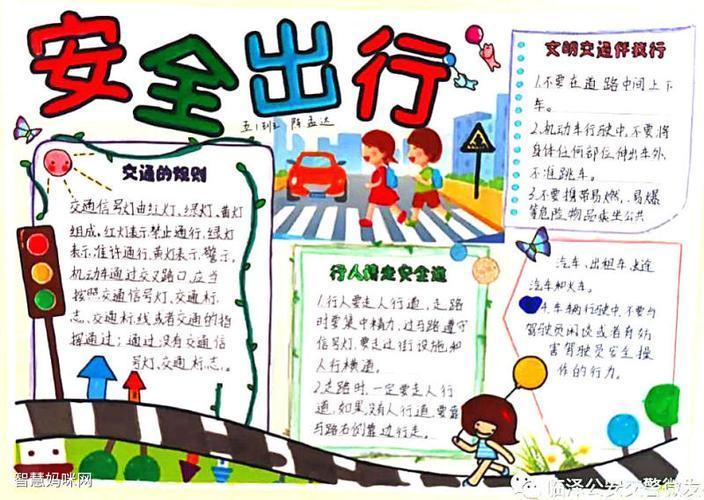 安全出行
五1班 陈孟达
交通的规则
交通信号灯由红灯、绿灯、黄灯
组成，红灯表示禁止通行，绿灯
表示准许通行，黄灯表示警示。
机动车通过交叉路口，应当
按照交通信号灯、交通标
志、交通标线或者交通的指
挥通过；通过没有交通信
号灯、交通标志。
行人请走安全道
1.行人要走人行道，走路
时要集中精力，过马路遵守
信号灯，要走过街设施和
人行横道。
2.走路时，一定要走人行
道，如果没有人行道，要靠
马路右侧靠边行走。
文明交通伴我行
1.不要在道路中间上下
车。
2.机动车行驶中，不要将
身体任何部位伸出车外，
不准跳车。
3.不要携带易燃、易爆
等危险物品乘坐公共
汽车、出租车、长途
汽车和火车。
4.车辆行驶中，不要与
驾驶员闲谈或者有妨
害驾驶员安全操
作的行为。
智慧妈咪网
临泽公安交警微发布